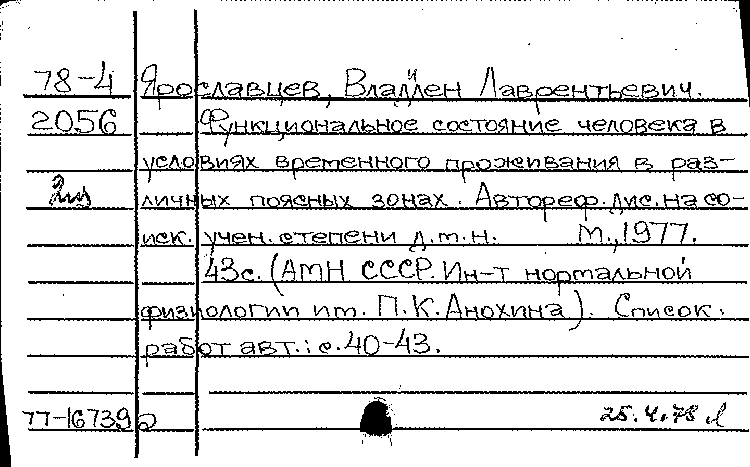 78-4 Ярославцев, Владлен Лаврентьевич.
2056 Функциональное состояние человека в
условиях временного проживания в раз-
личных поясных зонах. Автореф. дис. на со-
иск. учен. степени д.м.н. М., 1977.
43с. (АМН СССР. Ин-т нормальной
физиологии им. П.К. Анохина). Список.
работ авт.: с. 40-43.
77-16739
25.4.78